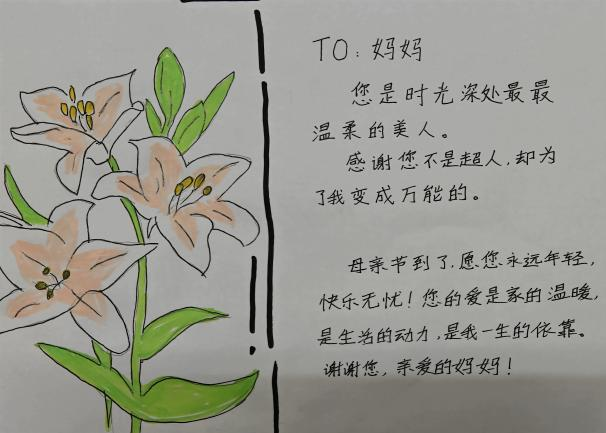 TO：妈妈
您是时光深处最最
温柔的美人。
感谢您不是超人，却为
了我变成万能的。
母亲节到了，愿您永远年轻，
快乐无忧！您的爱是家的温暖，
是生活的动力，是我一生的依靠。
谢谢您，亲爱的妈妈！